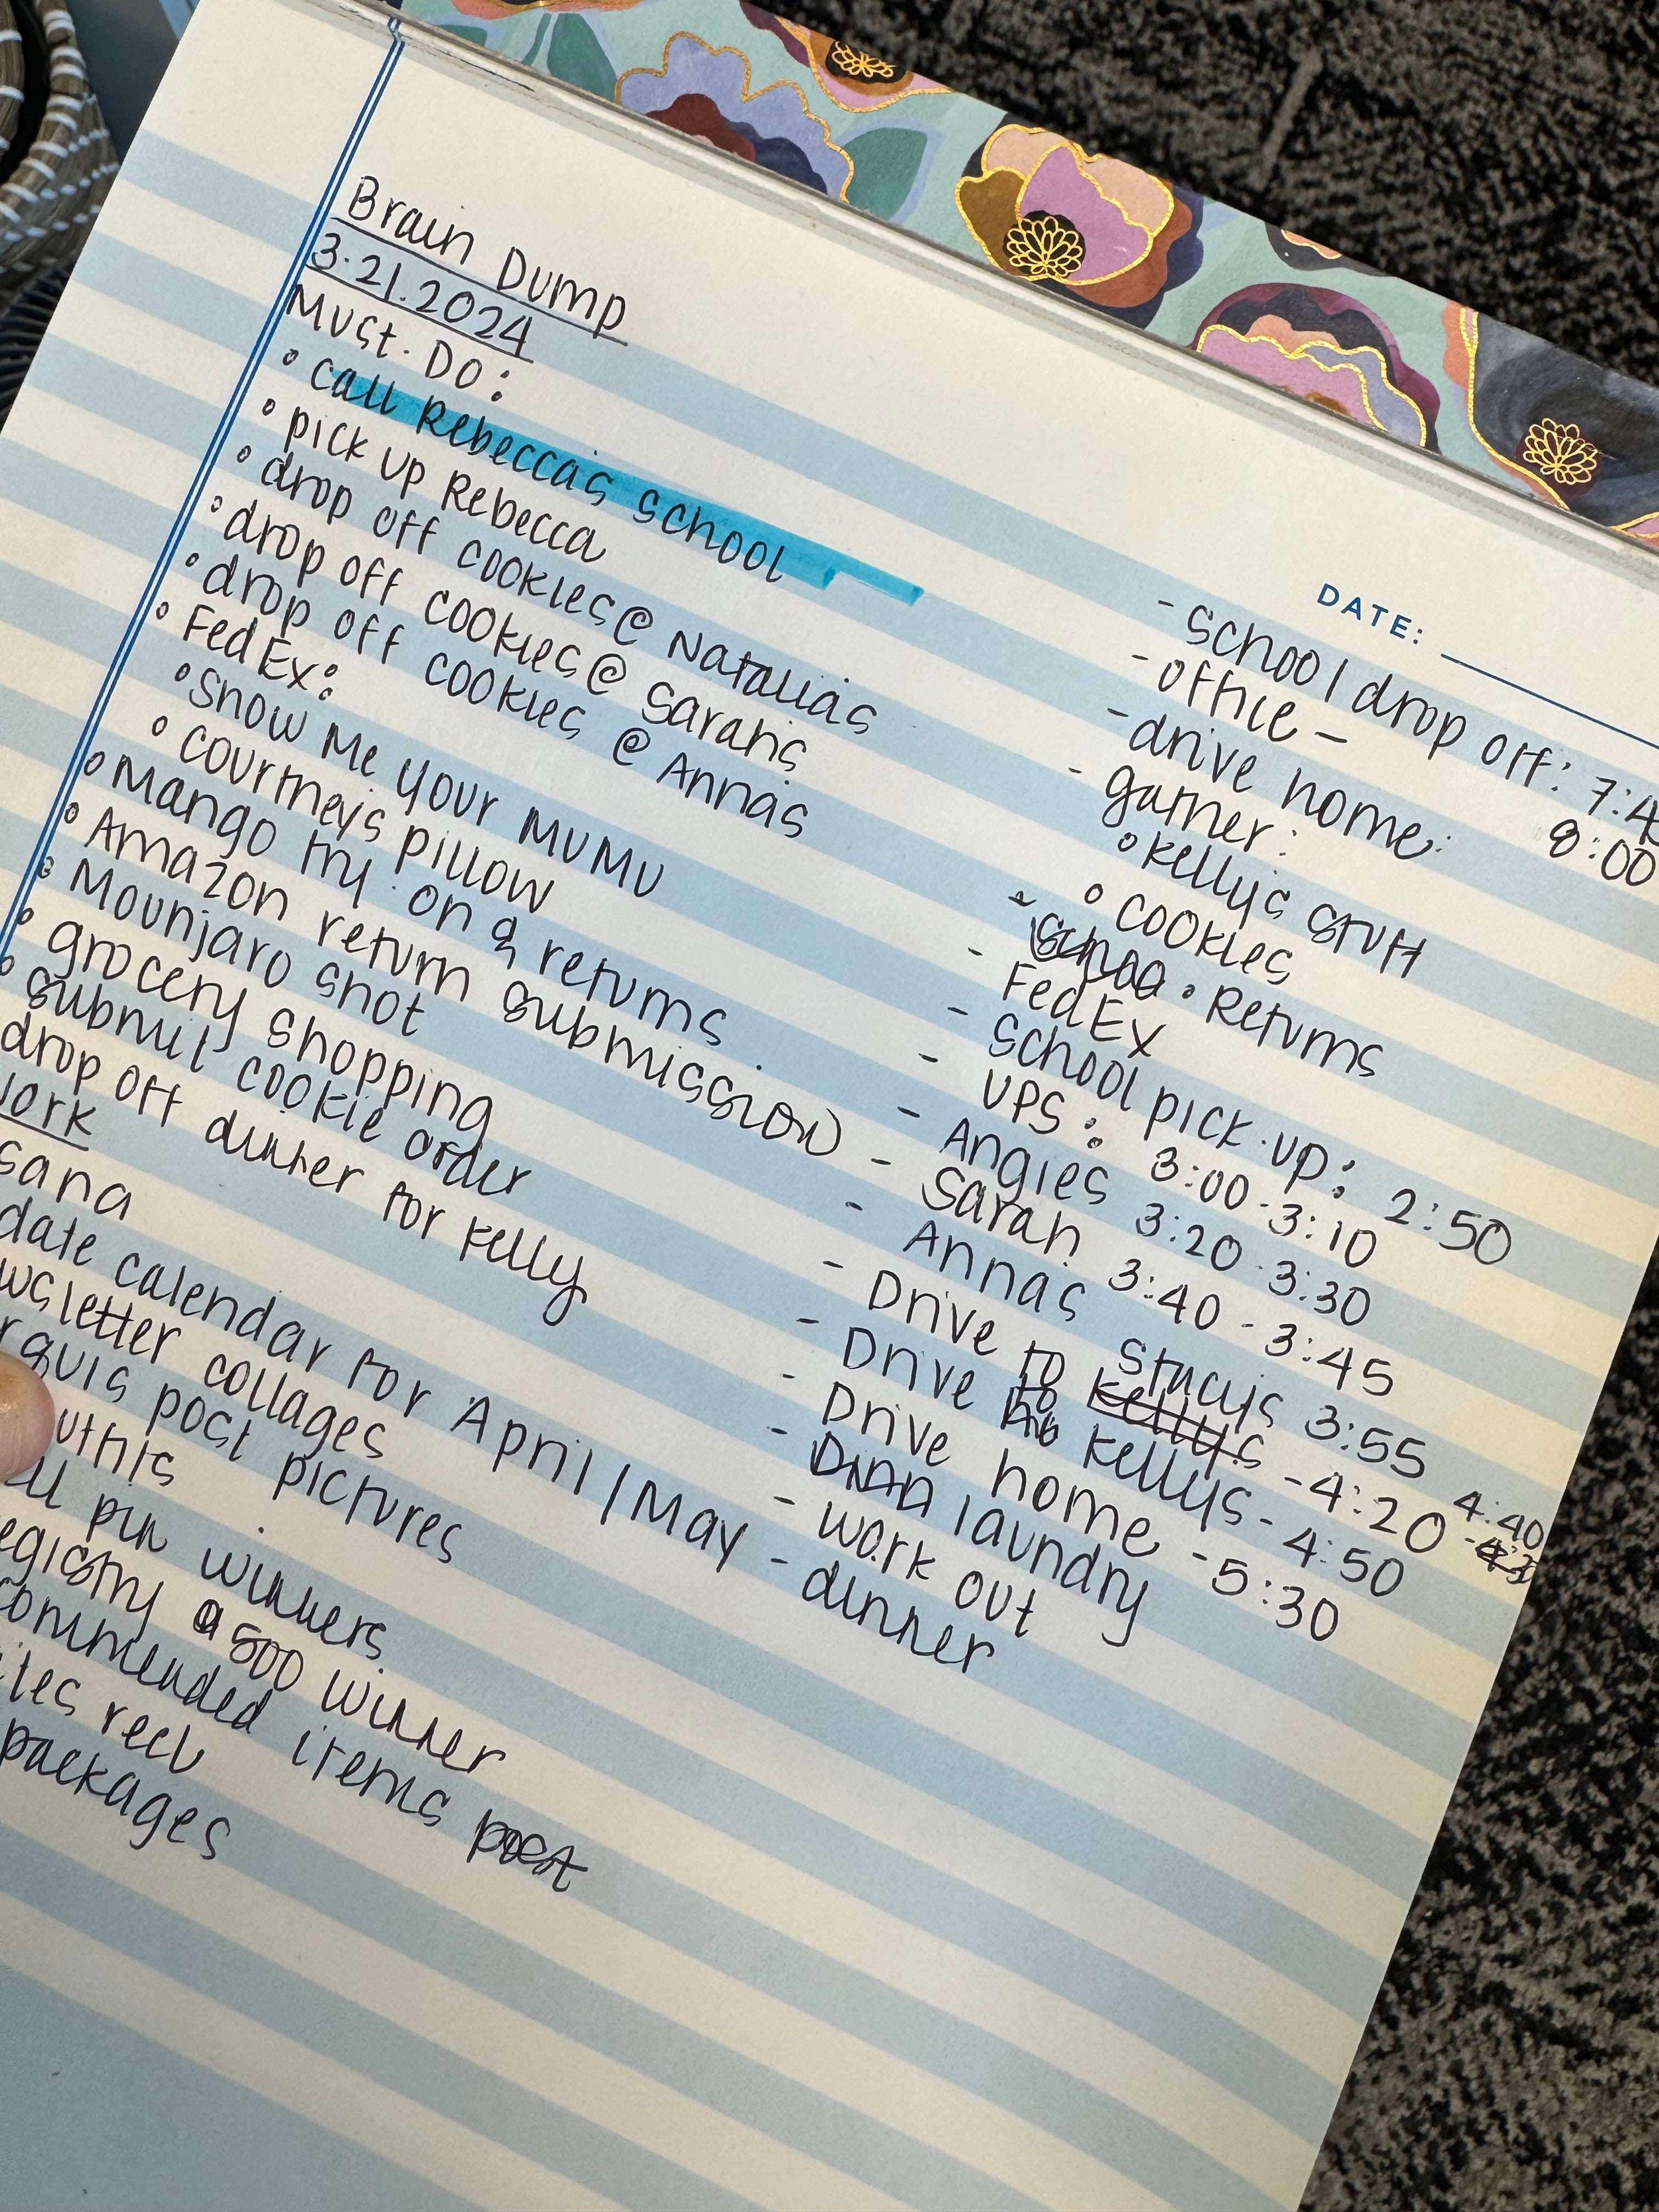 Brain Dump
3.21.2024
Must. Do:
• call Rebecca's school
• pick up Rebecca
• drop off cookies @ Natalia's
• drop off cookies @ Sarah's
• drop off cookies @ Anna's
• FedEx:
• Show Me Your MuMu
• Courtney's pillow
• Mango try on & returns
• Amazon return submission
• Mounjaro shot
• grocery shopping
• submit cookie order
drop off dinner for Kelly
ork
sana
date calendar for April/May
wsletter collages
rquis post pictures
uthis
ll pin winners
egistry a 500 winner
commended items post
ites reel
packages
DATE:
- School drop off: 7:4
- Office - 8:00
- drive home:
- gather:
• Kelly's stuff
• cookies
• Returns
- FedEx
- School pick-up: 2:50
- UPS: 3:00-3:10
- Angies 3:20-3:30
- Sarah 3:40-3:45
- Annas Stacys 3:55
- Drive to Kellys - 4:20 - 4:40
- Drive to Kellys - 4:50
- Drive home - 5:30
- laundry
- work out
- dinner